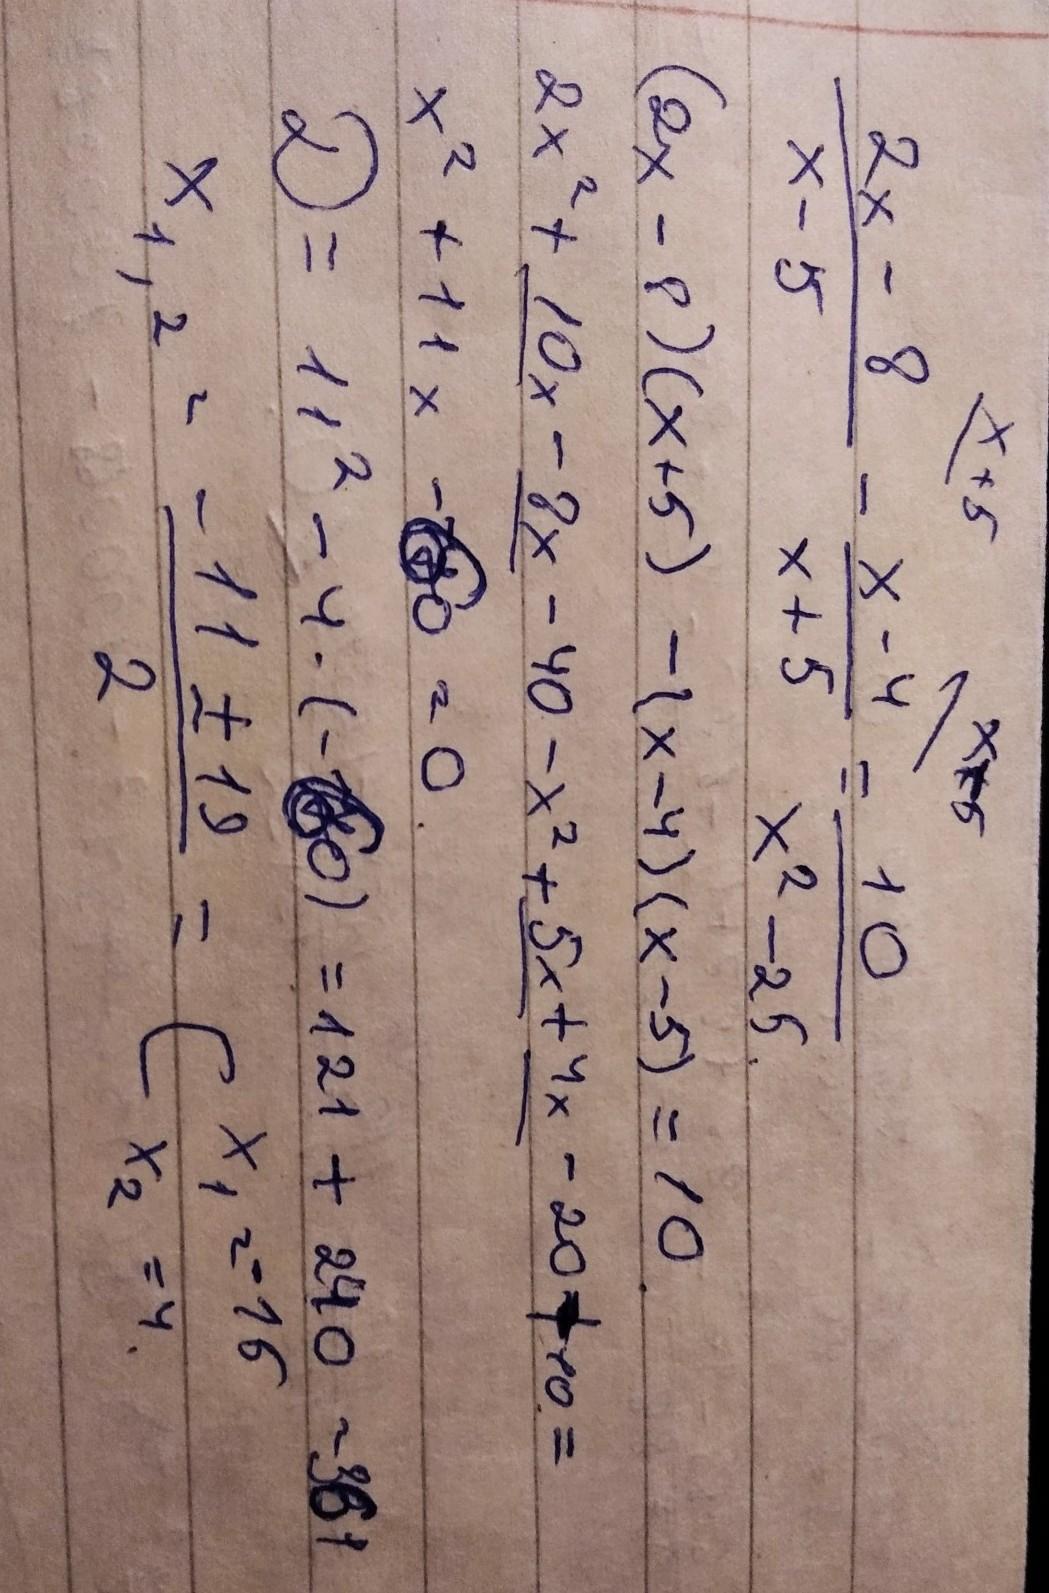 x+5 x-5
2x-8/x-5 - x-4/x+5 = 10/x²-25.
(2x-8)(x+5) -(x-4)(x-5) = 10.
2x² + 10x - 8x - 40 - x² + 5x + 4x - 20 + 10 =
x² + 11x - 60 = 0.
D = 11² - 4·(-60) = 121 + 240 = 361
x1,2 = -11 ± 19/2 = ( x1 = -15
x2 = 4.